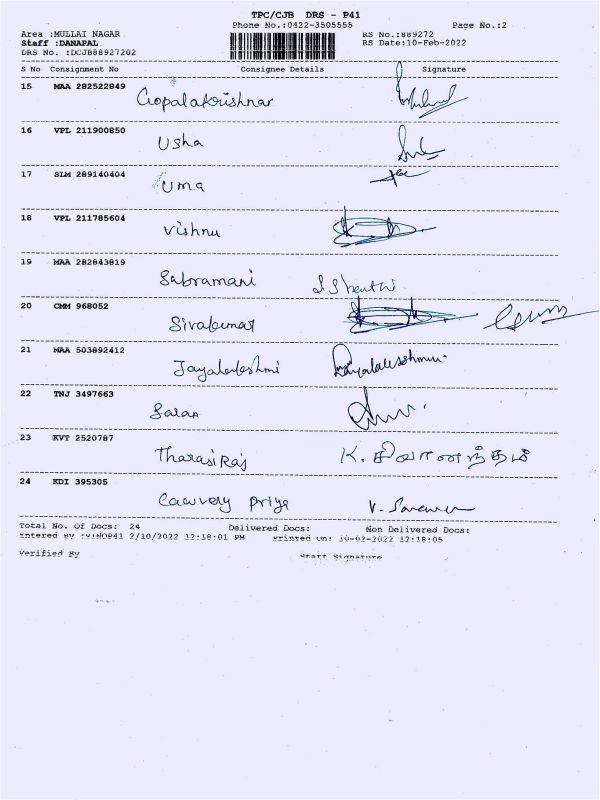 TPC/CJB DRS - P41
Phone No.:0422-3505555 Page No.:2
Area :MULLAI NAGAR RS No.:889272
Staff :DANAPAL RS Date:10-Feb-2022
DRS No. :DCJB88927202
S No Consignment No Consignee Details Signature
15 MAA 282522849 Gopalakrishnan
16 VPL 211900850 Usha
17 SLM 289140404 Uma
18 VPL 211785604 Vishnu
19 MAA 282843819
Sabramani S Shanthi
20 CMM 968052 Sivakumar
21 MAA 503892412 Jayalakshmi
22 TNJ 3497663 Saran
23 KVT 2520787 Tharasi Raj K. சிவானந்தம்
24 KDI 395305 Cauvery Priya
Total No. Of Docs: 24 Delivered Docs: Non Delivered Docs:
Entered By 2/10/2022 12:18:01 PM Printed On: 10-02-2022 12:18:05
Verified By Staff Signature